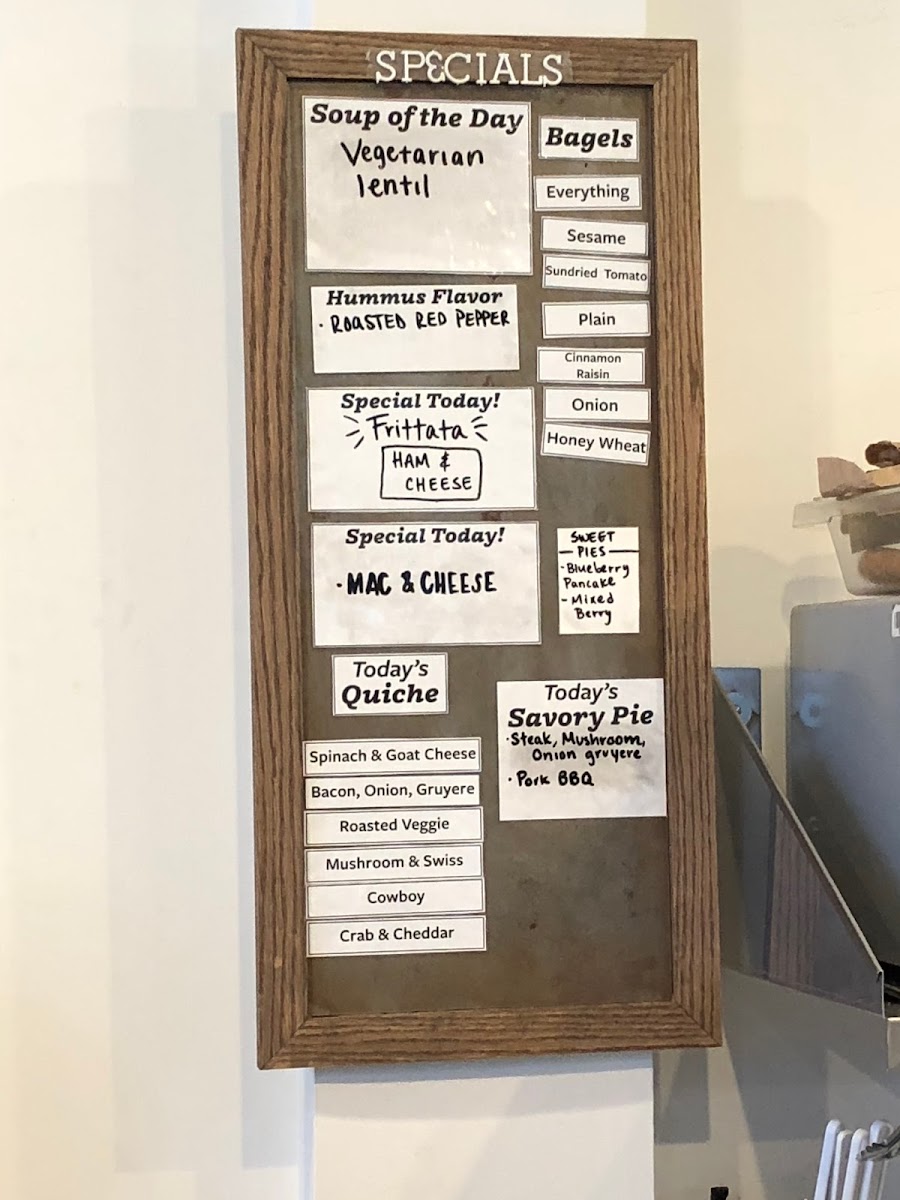 SPECIALS
Soup of the Day
Vegetarian
lentil
Hummus Flavor
· ROASTED RED PEPPER
Special Today!
Frittata
HAM &
CHEESE
Special Today!
· MAC & CHEESE
Today's
Quiche
Spinach & Goat Cheese
Bacon, Onion, Gruyere
Roasted Veggie
Mushroom & Swiss
Cowboy
Crab & Cheddar
Bagels
Everything
Sesame
Sundried Tomato
Plain
Cinnamon
Raisin
Onion
Honey Wheat
SWEET
PIES
- Blueberry
Pancake
- Mixed
Berry
Today's
Savory Pie
· Steak, Mushroom,
Onion gruyere
· Pork BBQ